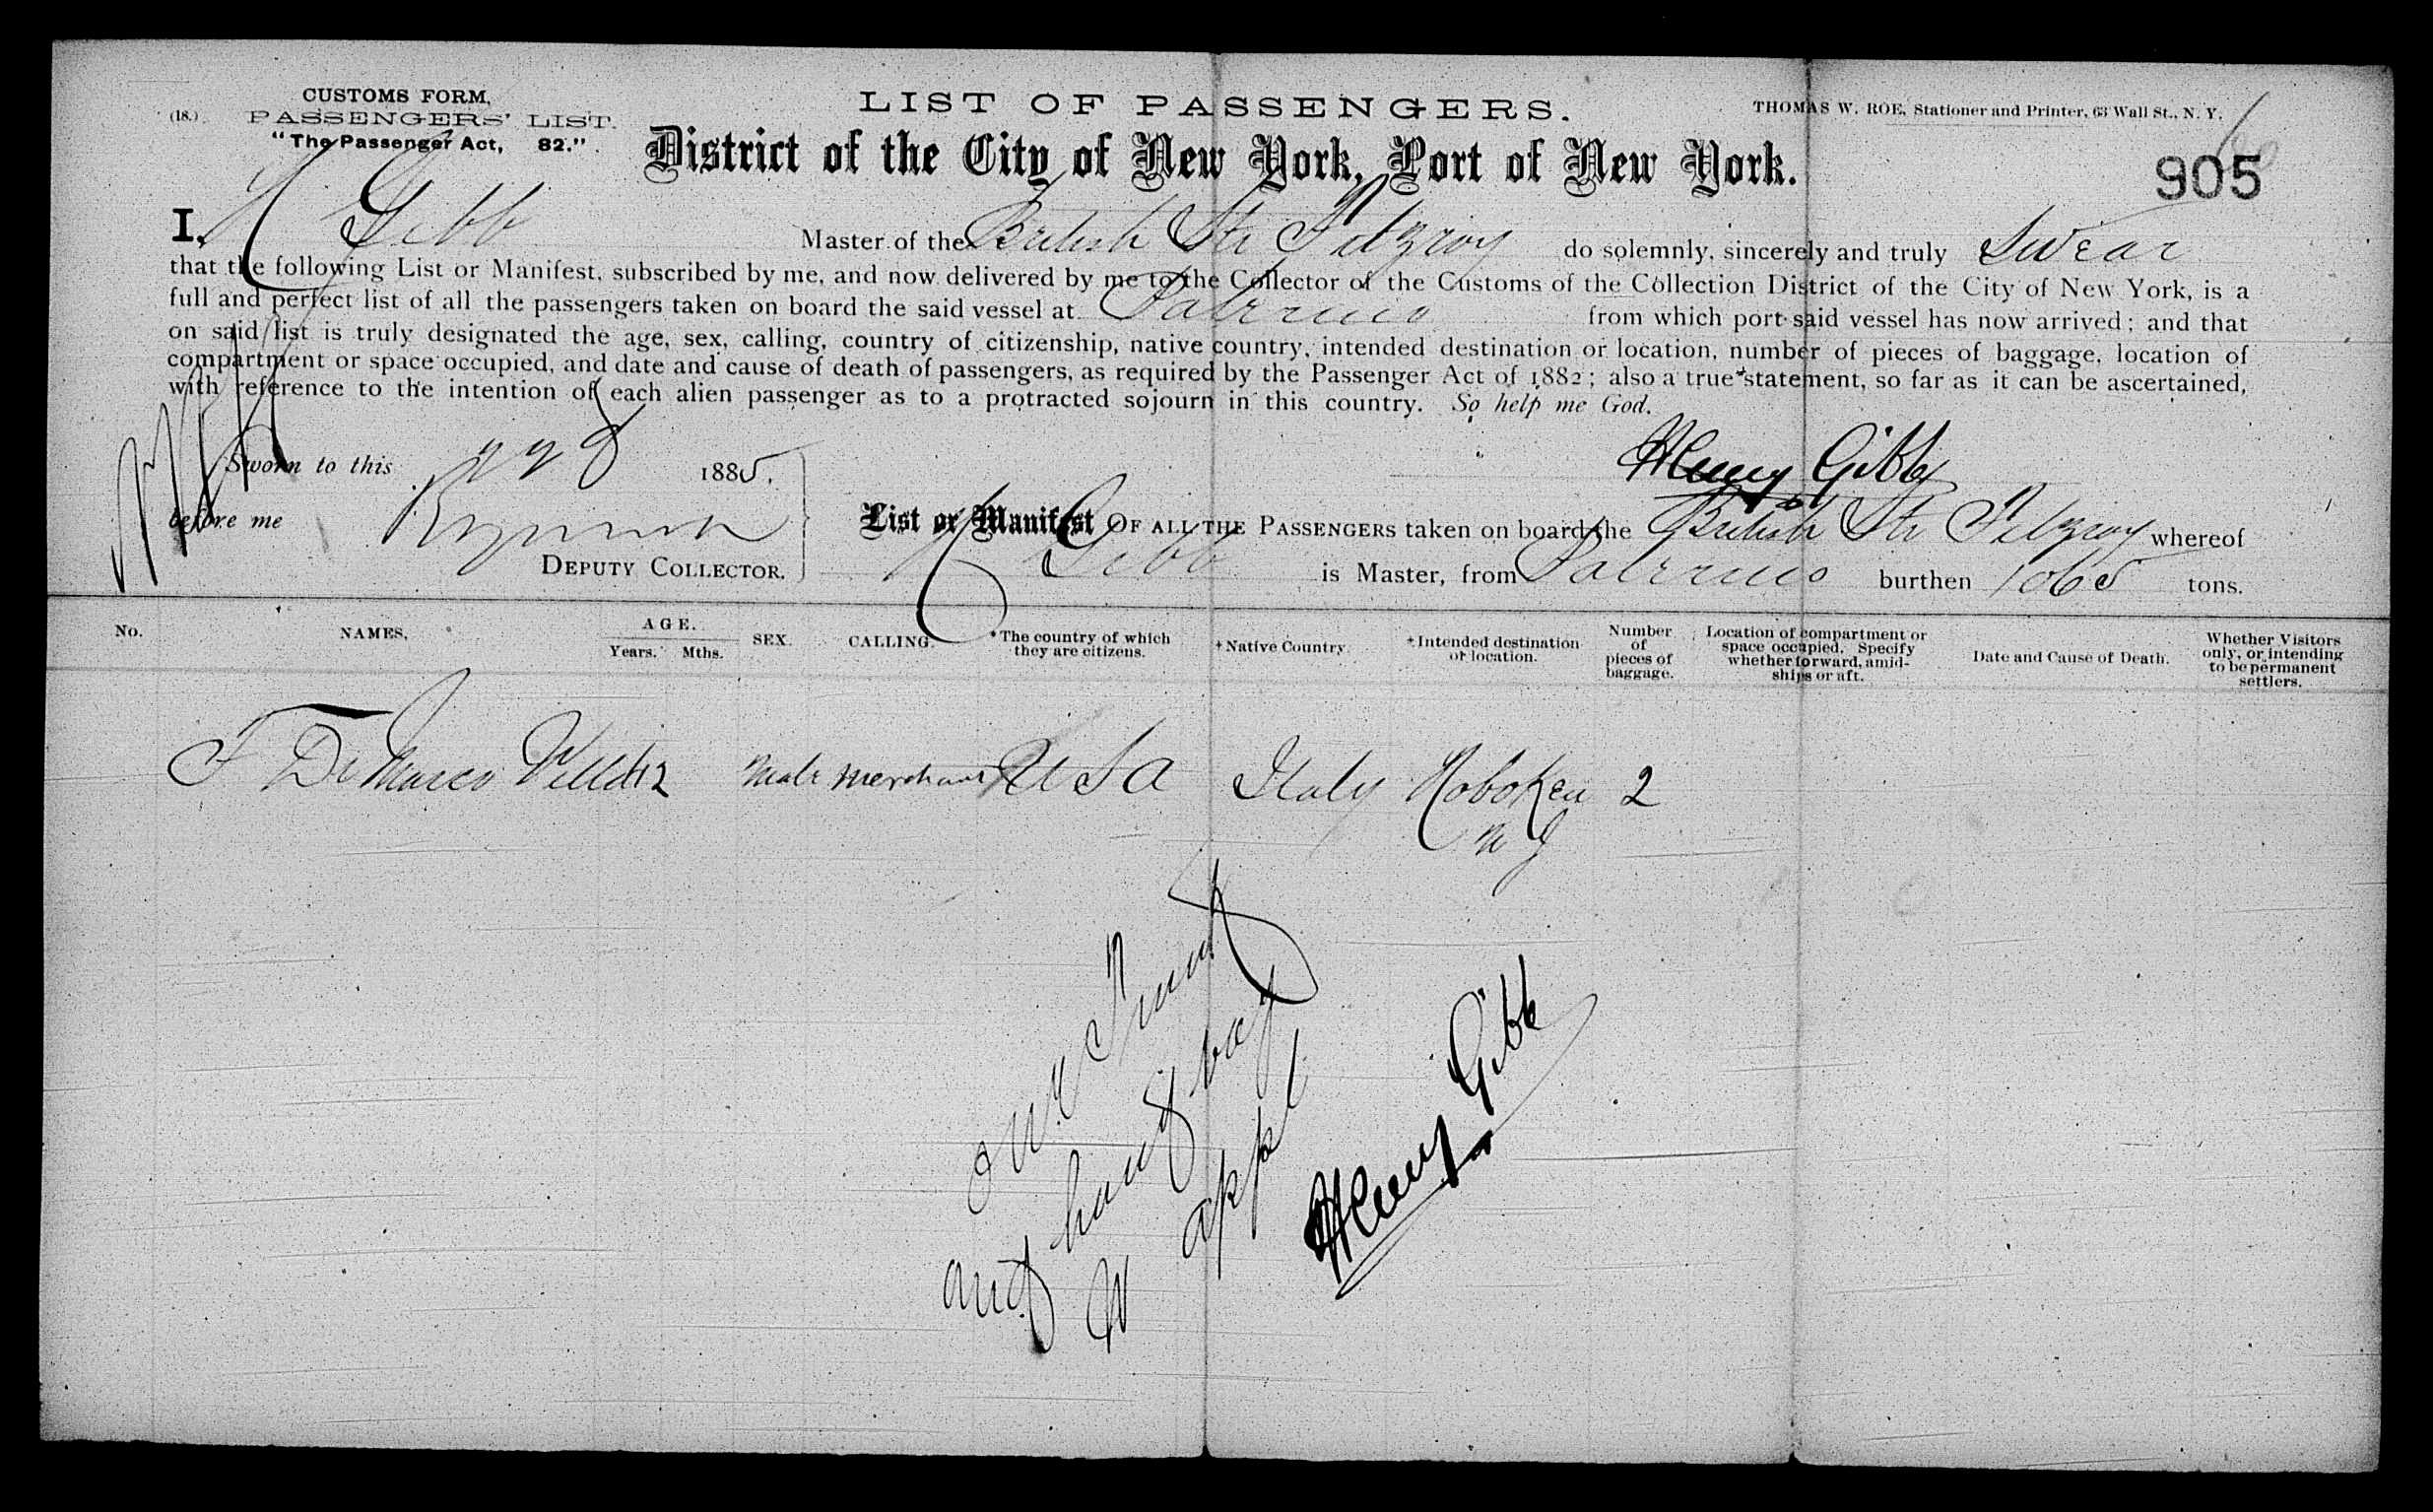 CUSTOMS FORM,
(18.) PASSENGERS' LIST.
"The Passenger Act, 82."
LIST OF PASSENGERS.
THOMAS W. ROE, Stationer and Printer, 63 Wall St., N. Y.
District of the City of New York, Port of New York.
905
I, H Gibb Master of the British Str Fitzroy do solemnly, sincerely and truly Swear
that the following List or Manifest, subscribed by me, and now delivered by me to the Collector of the Customs of the Collection District of the City of New York, is a
full and perfect list of all the passengers taken on board the said vessel at Palermo from which port said vessel has now arrived; and that
on said list is truly designated the age, sex, calling, country of citizenship, native country, intended destination or location, number of pieces of baggage, location of
compartment or space occupied, and date and cause of death of passengers, as required by the Passenger Act of 1882; also a true statement, so far as it can be ascertained,
with reference to the intention of each alien passenger as to a protracted sojourn in this country. So help me God.
Henry Gibb
Sworn to this 1885.
before me
DEPUTY COLLECTOR.
List or Manifest OF ALL THE PASSENGERS taken on board the British Str Fitzroy whereof
H Gibb is Master, from Palermo burthen 1065 tons.
No. NAMES. AGE. Years. Mths. SEX. CALLING. *The country of which they are citizens. *Native Country. *Intended destination or location. Number of pieces of baggage. Location of compartment or space occupied. Specify whether forward, amidships or aft. Date and Cause of Death. Whether Visitors only, or intending to be permanent settlers.
F De Marco male merchant U S A Italy Hoboken 2
N J
one Trunk
and hand bag
W appl
Henry Gibb